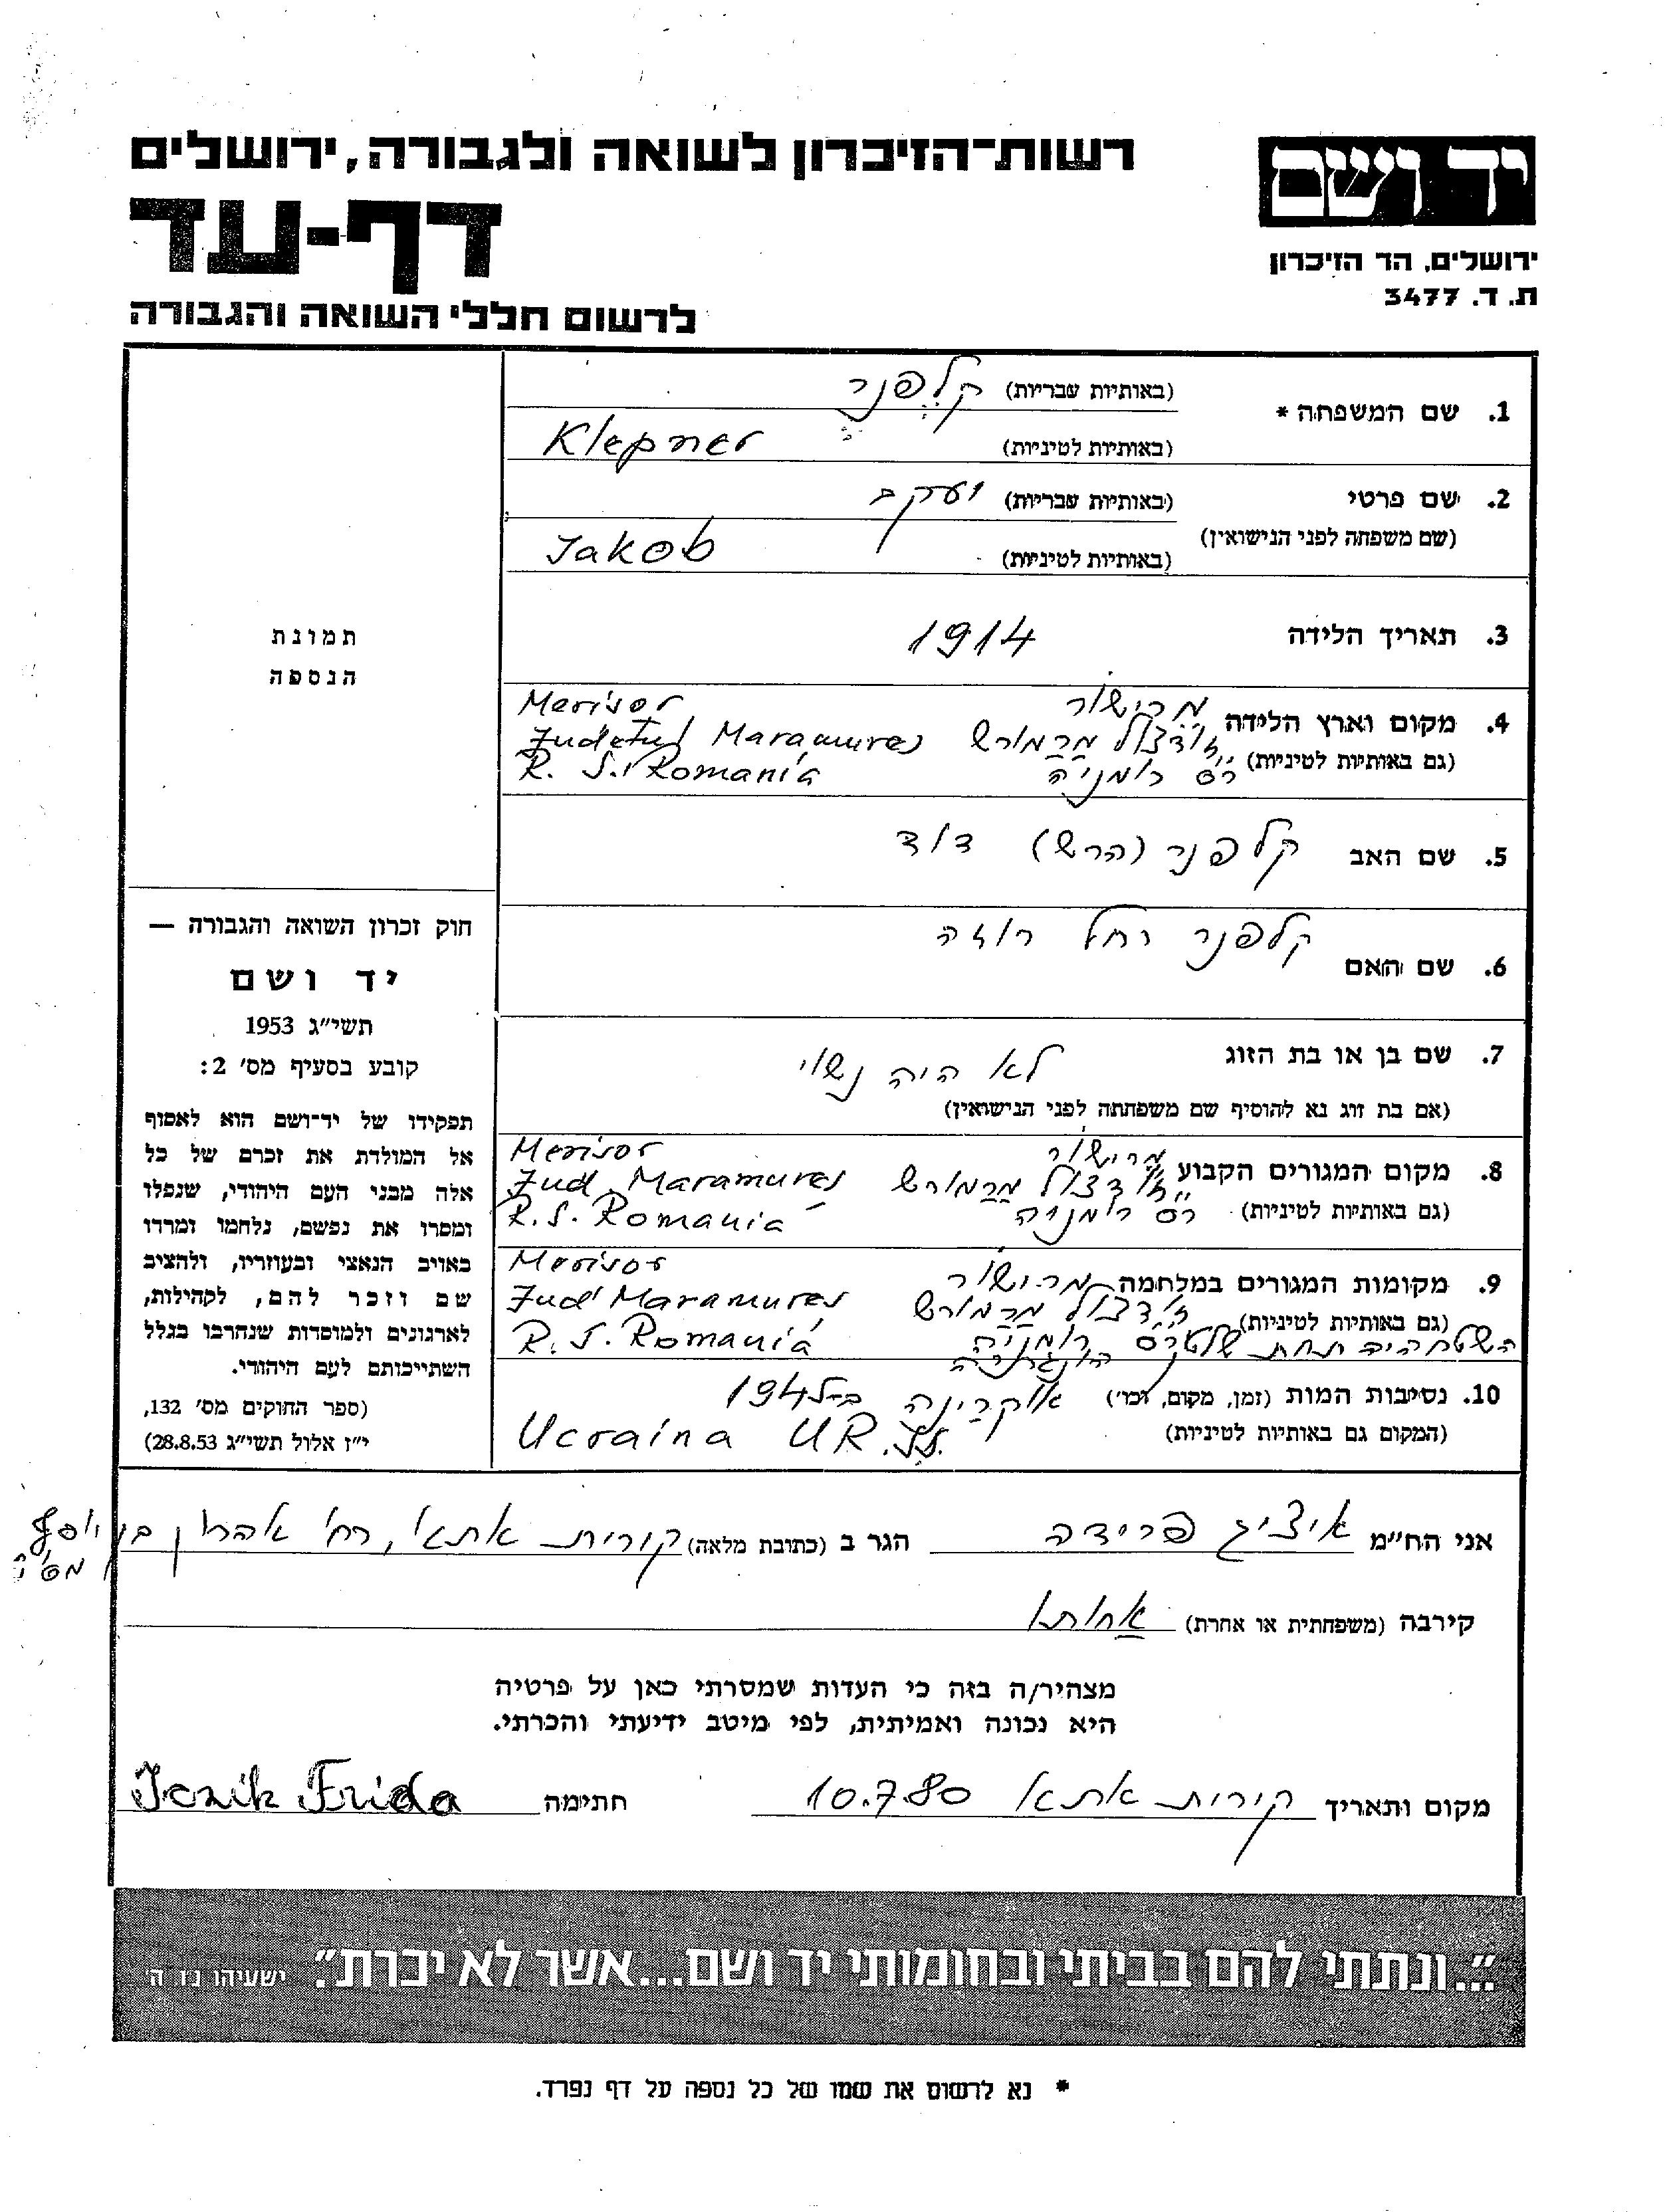 רשות-הזיכרון לשואה ולגבורה, ירושלים
דף-עד
לרשום חללי השואה והגבורה
יד ושם
ירושלים, הר הזיכרון
ת. ד. 3477
1. שם המשפחה * (באותיות עבריות) קלפנר
(באותיות לטיניות) Klepner
2. שם פרטי (באותיות עבריות) יעקב
(שם משפחה לפני הנישואין)
(באותיות לטיניות) Jakob
3. תאריך הלידה 1914
4. מקום וארץ הלידה מרישור Merisor
(גם באותיות לטיניות) ז'ודצול מרמורש Judetul Maramures
רס רומניה R. S. Romania
5. שם האב קלפנר (הרש) דוד
6. שם האם קלפנר רחל רוזה
7. שם בן או בת הזוג לא היה נשוי
(אם בת זוג נא להוסיף שם משפחתה לפני הנישואין)
8. מקום המגורים הקבוע מרישור Merisor
(גם באותיות לטיניות) ז'ודצול מרמורש Jud. Maramures
רס רומניה R.S. Romania
9. מקומות המגורים במלחמה מרישור Merisor
(גם באותיות לטיניות) ז'ודצול מרמורש Jud Maramures
רס רומניה R. S. Romania
השטח היה תחת שלטון
10. נסיבות המות (זמן, מקום, וכו') אוקרינה ב-1945
(המקום גם באותיות לטיניות) Ucraina UR.SS.
תמונת
הנספה
חוק זכרון השואה והגבורה —
יד ושם
תשי"ג 1953
קובע בסעיף מס' 2:
תפקידו של יד-ושם הוא לאסוף
אל המולדת את זכרם של כל
אלה מבני העם היהודי, שנפלו
ומסרו את נפשם, נלחמו ומרדו
באויב הנאצי ובעוזריו, ולהציב
שם וזכר להם, לקהילות,
לארגונים ולמוסדות שנחרבו בגלל
השתייכותם לעם היהודי.
(ספר החוקים מס' 132,
י"ז אלול תשי"ג 28.8.53)
אני הח"מ איציג פרידה הגר ב (כתובת מלאה) קורית אתא, רח' אהרון בן יוסף
קירבה (משפחתית או אחרת) אחותו
מצהיר/ה בזה כי העדות שמסרתי כאן על פרטיה
היא נכונה ואמיתית, לפי מיטב ידיעתי והכרתי.
מקום ותאריך קירית אתא 10.7.80 חתימה Iczik Frida
"...ונתתי להם בביתי ובחומותי יד ושם...אשר לא יכרת". ישעיהו נו ה
* נא לרשום את שמו של כל נספה על דף נפרד.